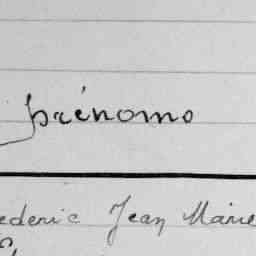 prénoms
ederic Jean Marie